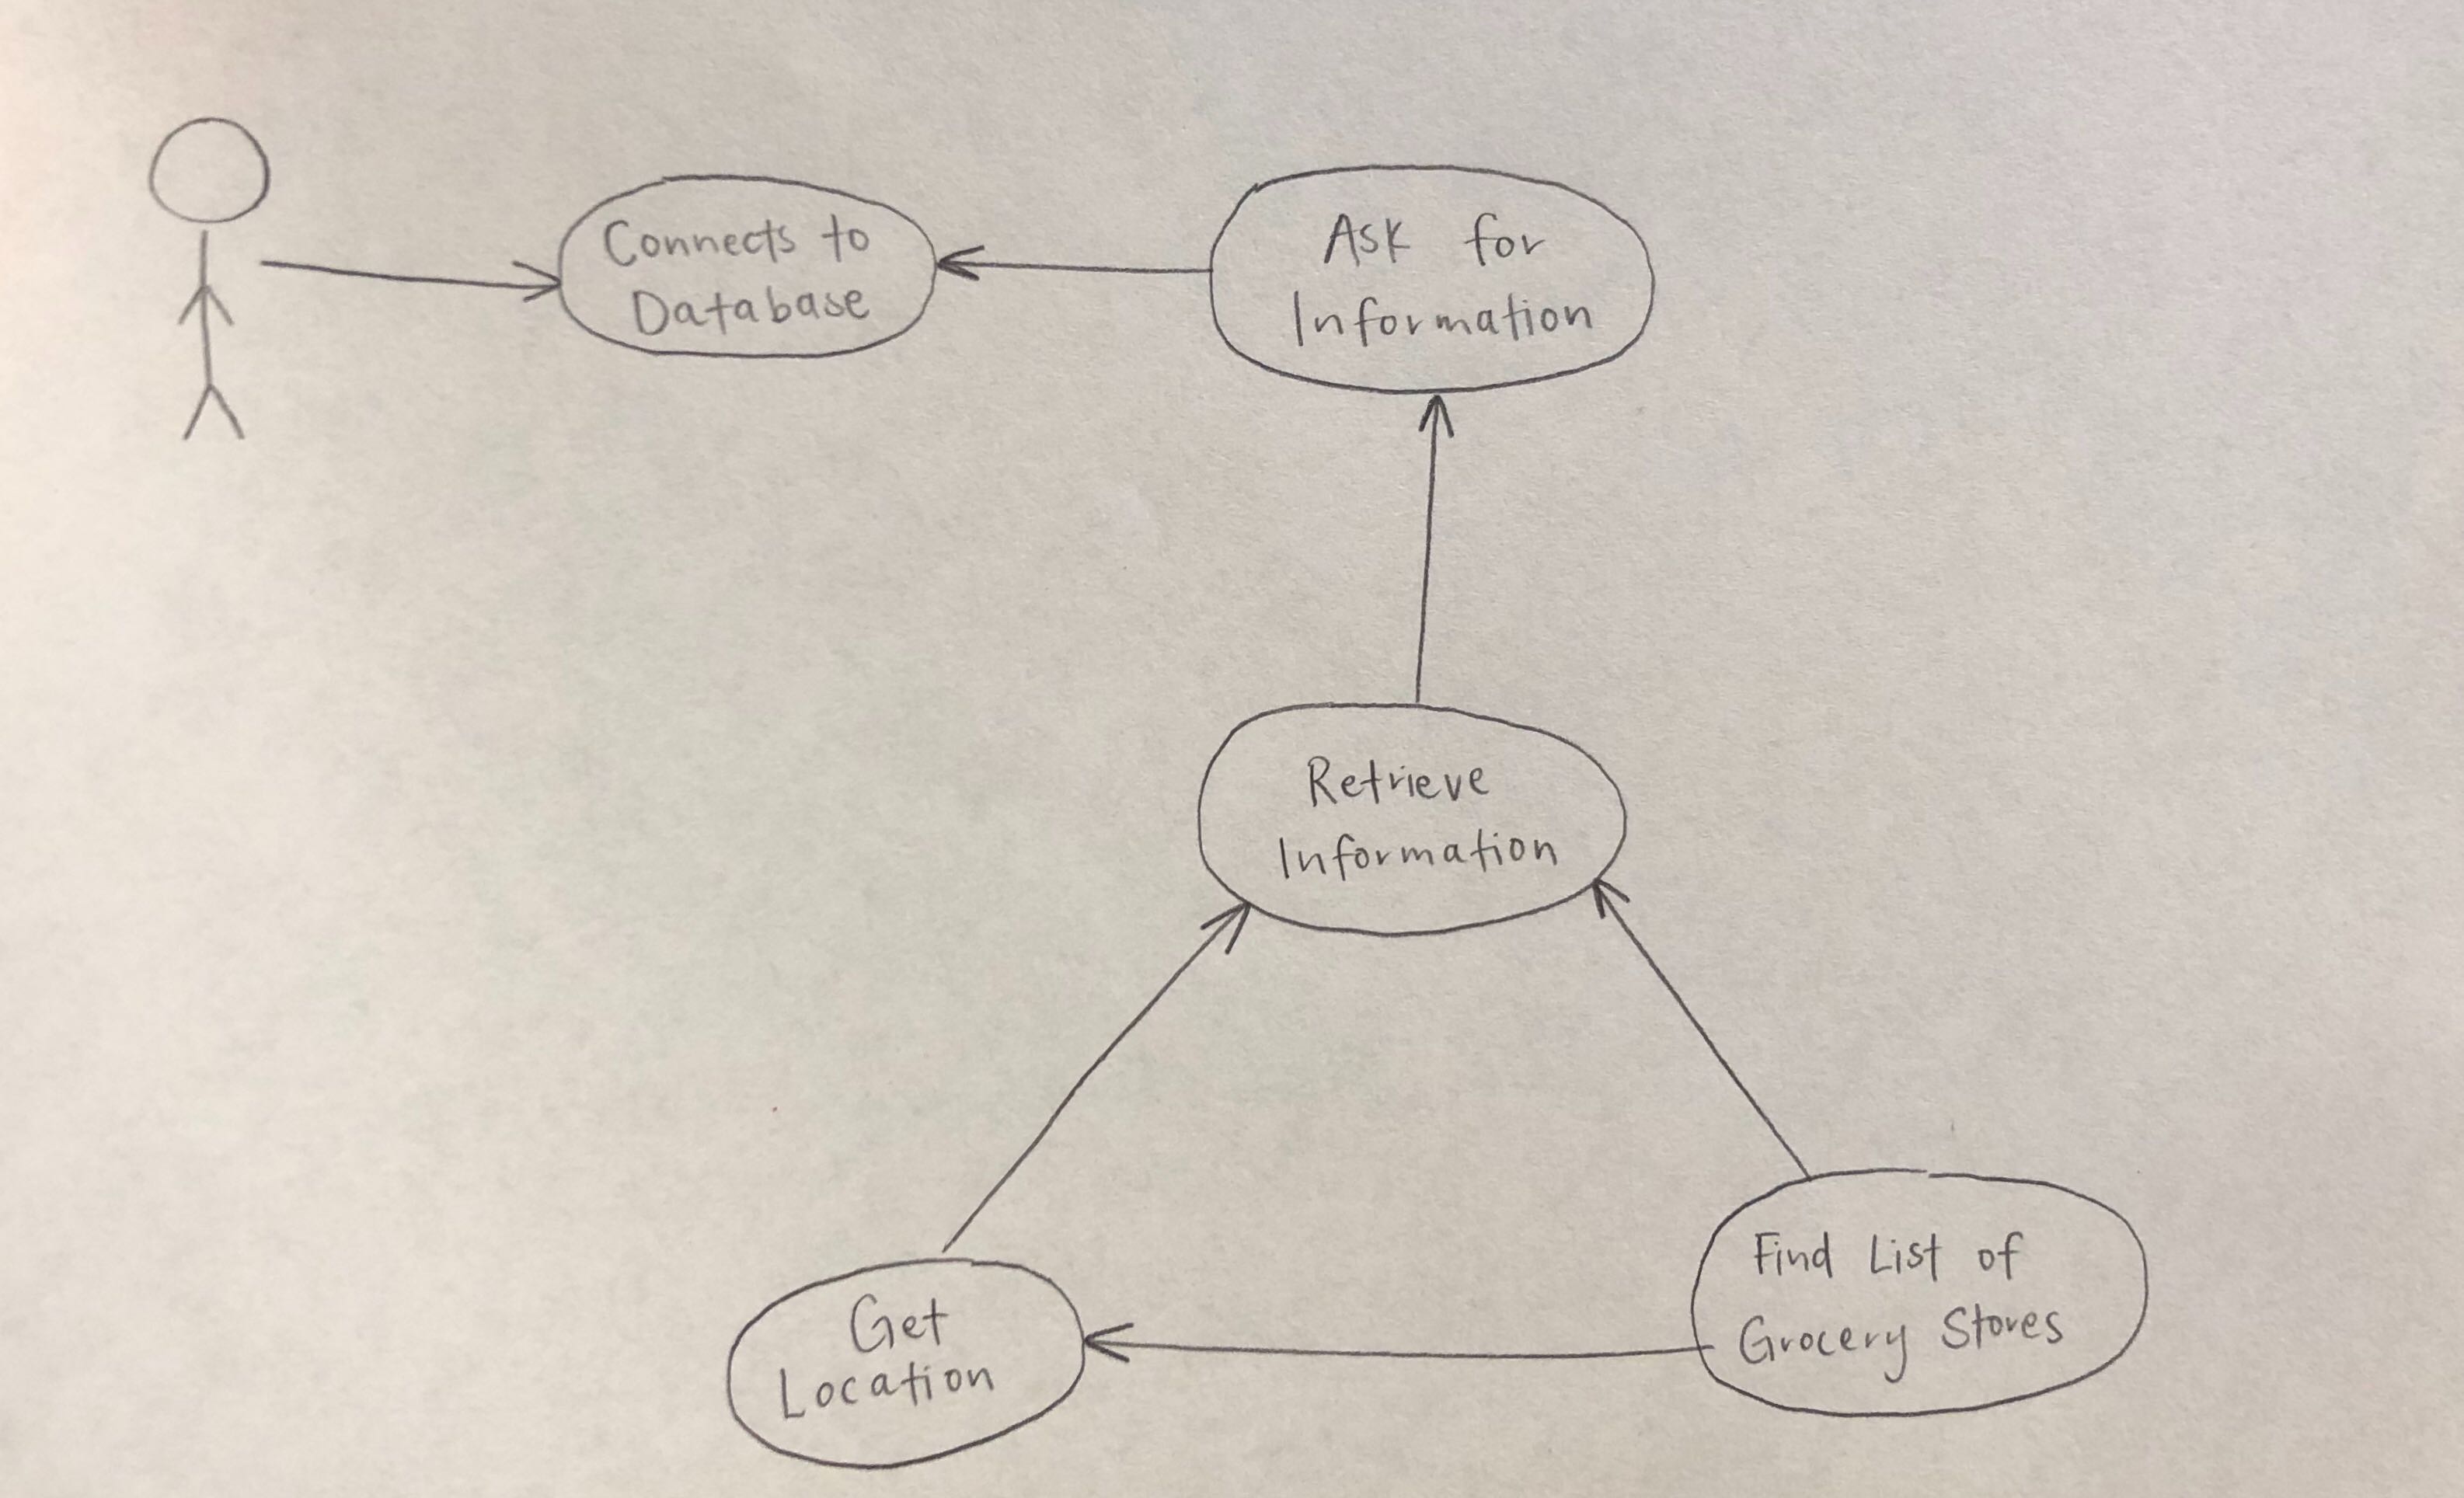 Connects to
Database
Ask for
Information
Retrieve
Information
Get
Location
Find List of
Grocery Stores